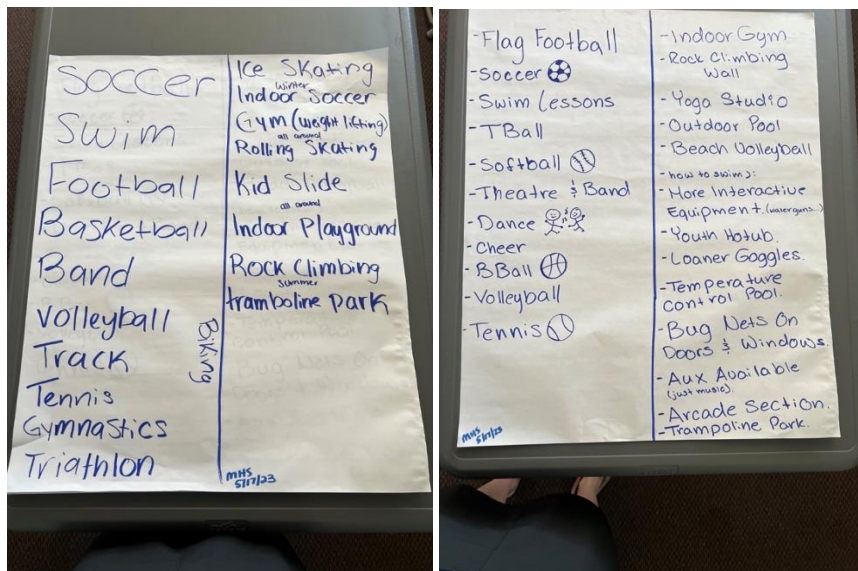 Soccer
Swim
Football
Basketball
Band
Volleyball
Track
Tennis
Gymnastics
Triathlon
Biking
Ice Skating
Winter
Indoor Soccer
Gym (weight lifting)
all around
Rolling Skating
Kid Slide
all around
Indoor Playground
Rock Climbing
Summer
tramboline park
MHS
5/17/23
- Flag Football
- Soccer
- Swim Lessons
- TBall
- Softball
- Theatre & Band
- Dance
- Cheer
- BBall
- Volleyball
- Tennis
MHS
5/17/23
- Indoor Gym
- Rock Climbing
Wall
- Yoga Studio
- Outdoor Pool
- Beach Volleyball
- how to swim):
- More Interactive
Equipment. (waterguns..)
- Youth Hotub.
- Loaner Goggles.
- Temperature
control Pool.
- Bug Nets On
Doors & Windows.
- Aux Available
(just music).
- Arcade Section.
- Trampoline Park.